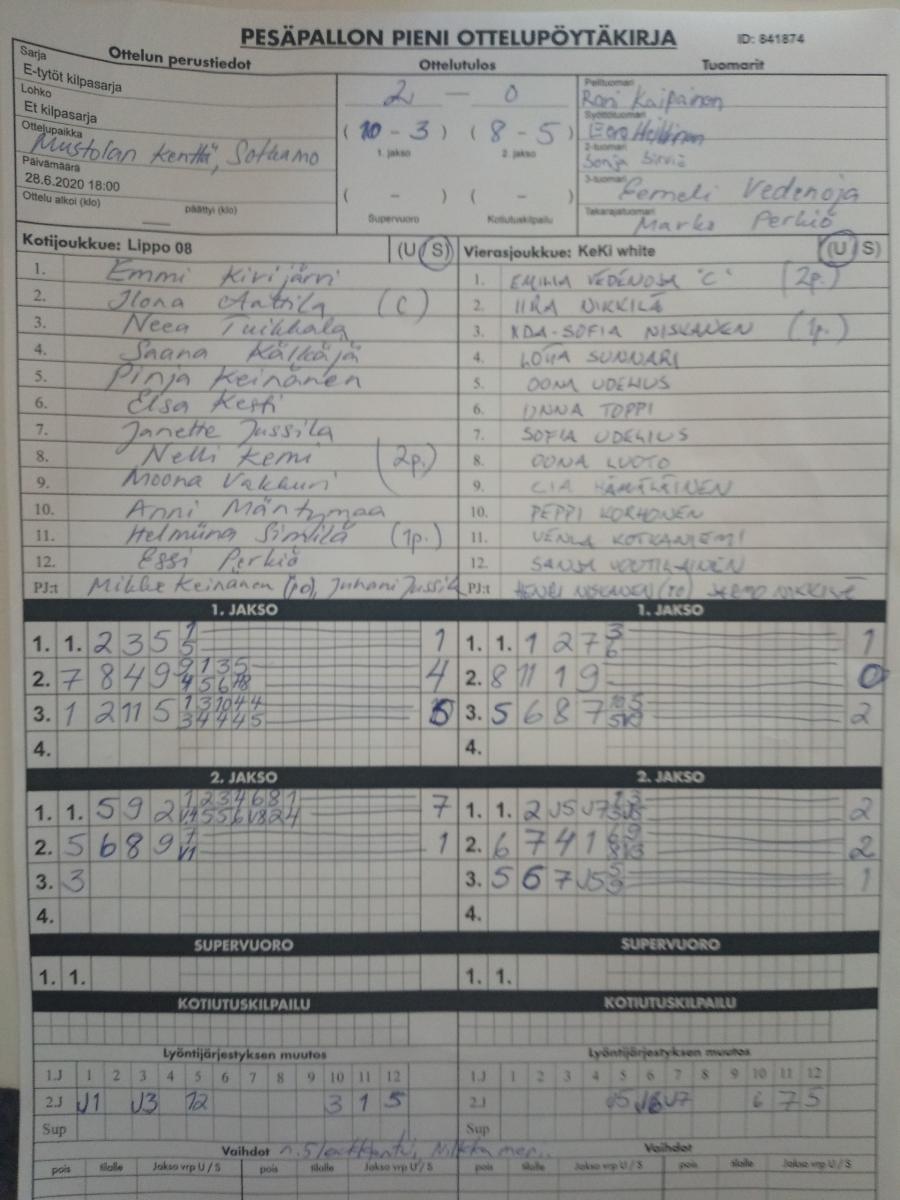 PESÄPALLON PIENI OTTELUPÖYTÄKIRJA ID: 841874
Ottelun perustiedot Ottelutulos Tuomarit
Sarja
E-tytöt kilpasarja
Lohko
Et kilpasarja
Ottelupaikka
Mustolan kenttä, Sotkamo
Päivämäärä
28.6.2020 18:00
Ottelu alkoi (klo) päättyi (klo)
2 — 0
(10 - 3) (8 - 5)
1. jakso 2. jakso
( - ) ( - )
Supervuoro Kotiutuskilpailu
Pelituomari
Roni Kaipainen
Syöttötuomari
Eero
2-tuomari
Sonja Sirviö
3-tuomari
Eemeli Vedenoja
Takarajatuomari
Marko Perkiö
Kotijoukkue: Lippo 08 (U S)
1. Emmi Kivijärvi
2. Ilona Aattila (C)
3. Neea Tuikkala
4. Saana Kälkäjä
5. Pinja Keinänen
6. Elsa Kesti
7. Janette Jussila
8. Nelli Kemi (2p.)
9. Moona Vakkuri
10. Anni Mäntymaa
11. Helmiina Similä (1p.)
12. Essi Perkiö
PJ:t Mikko Keinänen (po), Juhani Jussila
Vierasjoukkue: KeKi white (U S)
1. EMILIA VEDENOJA "C" (2p.)
2. IIRA NIKKILÄ
3. IDA-SOFIA NISKANEN (1p.)
4. LOTTA SUNNARI
5. OONA UDELIUS
6. IINNA TOPPI
7. SOFIA UDELIUS
8. OONA LUOTO
9. CIA HÄMÄLÄINEN
10. PEPPI KORHONEN
11. VENLA KOTKANIEMI
12. SANJA VOUTILAINEN
PJ:t HENRI NISKANEN (PO) JARMO NIKKILÄ
1. JAKSO 1. JAKSO
1. 1. 2 3 5 1 5 1
2. 7 8 4 9 4
3. 1 2 11 5 5
4.
1. 1. 1 2 7 3 6 1
2. 8 11 1 9 0
3. 5 6 8 7 2
4.
2. JAKSO 2. JAKSO
1. 1. 5 9 2 7
2. 5 6 8 9 1
3. 3
4.
1. 1. 2 J5 J7 2
2. 6 7 4 1 2
3. 5 6 7 J5 1
4.
SUPERVUORO SUPERVUORO
1. 1. 1. 1.
KOTIUTUSKILPAILU KOTIUTUSKILPAILU
Lyöntijärjestyksen muutos Lyöntijärjestyksen muutos
1.J 1 2 3 4 5 6 7 8 9 10 11 12
2.J J1 J3 12 3 1 5
Sup
1.J 1 2 3 4 5 6 7 8 9 10 11 12
2.J J5 J6 J7 6 7 5
Sup
Vaihdot Vaihdot
pois tilalle Jakso vrp U / S pois tilalle Jakso vrp U / S pois tilalle Jakso vrp U / S pois tilalle Jakso vrp U / S